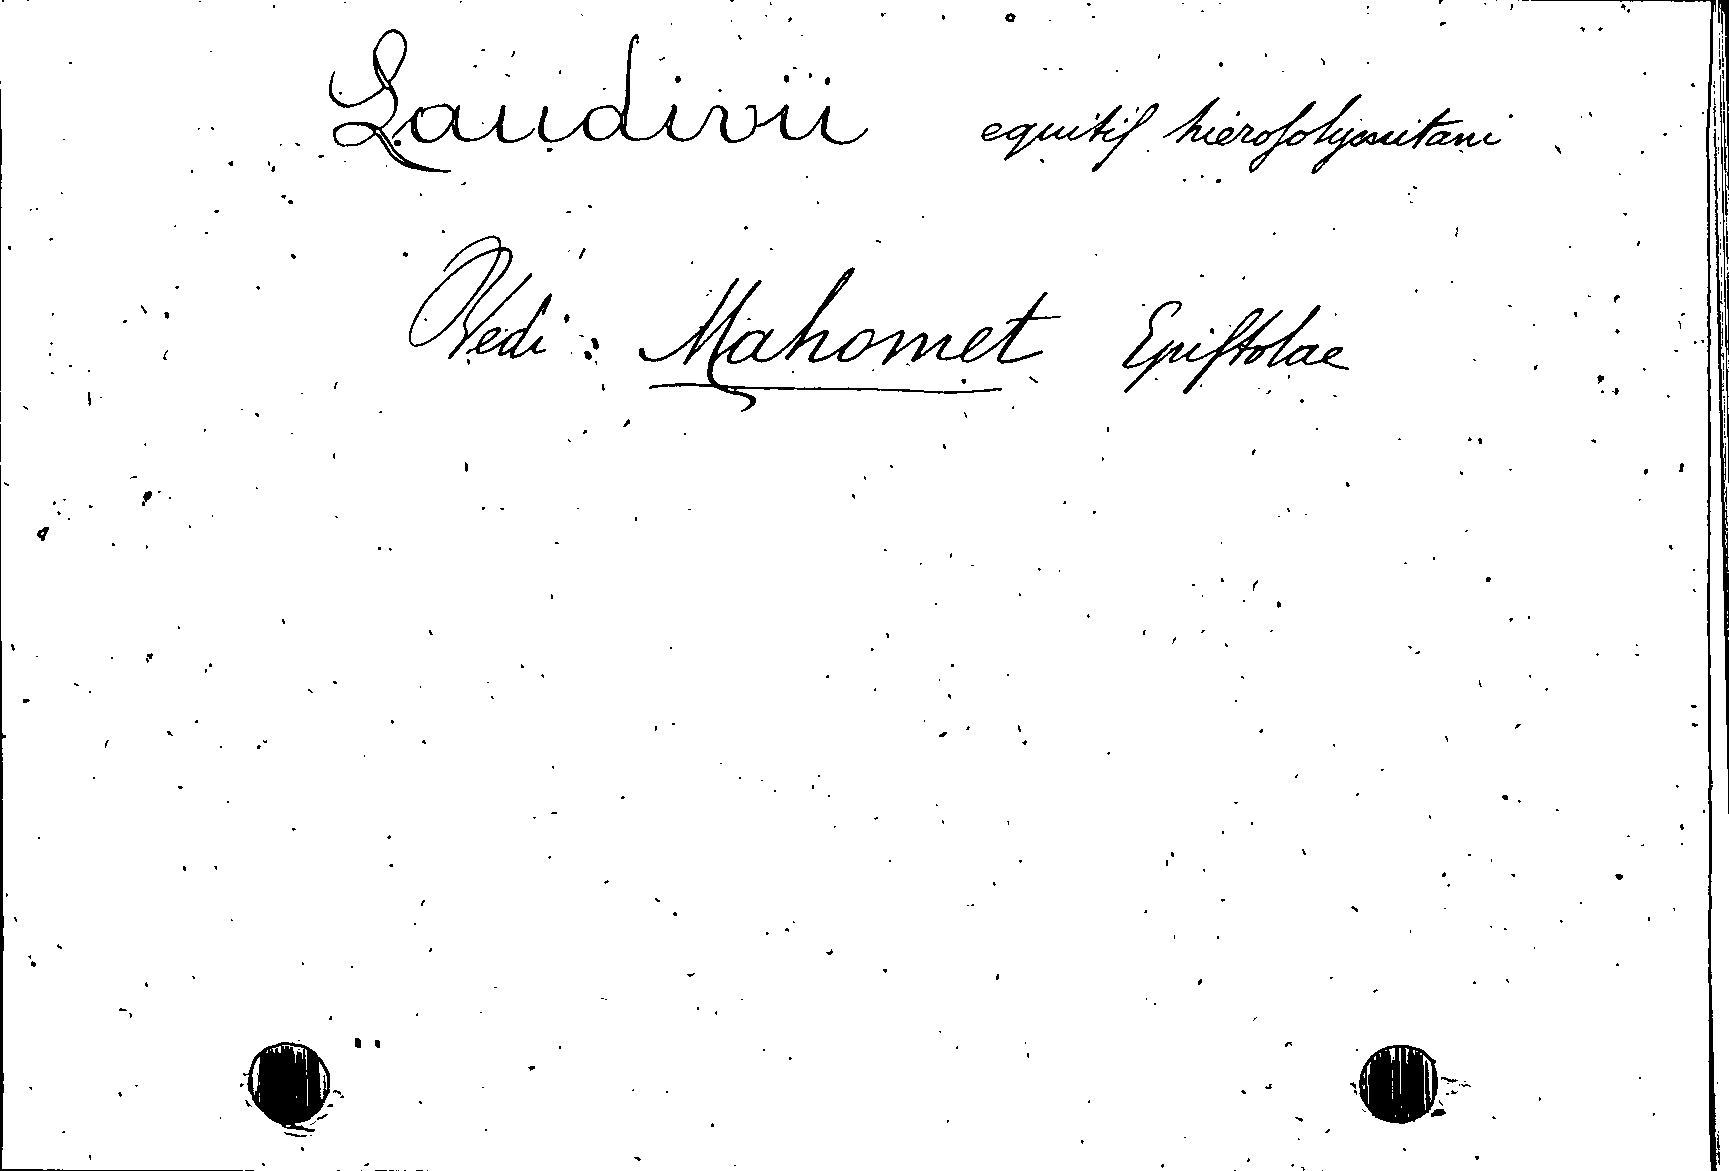 Laudivii equitiſ hieroſolymitani
Vedi: Mahomet Epiſtolae